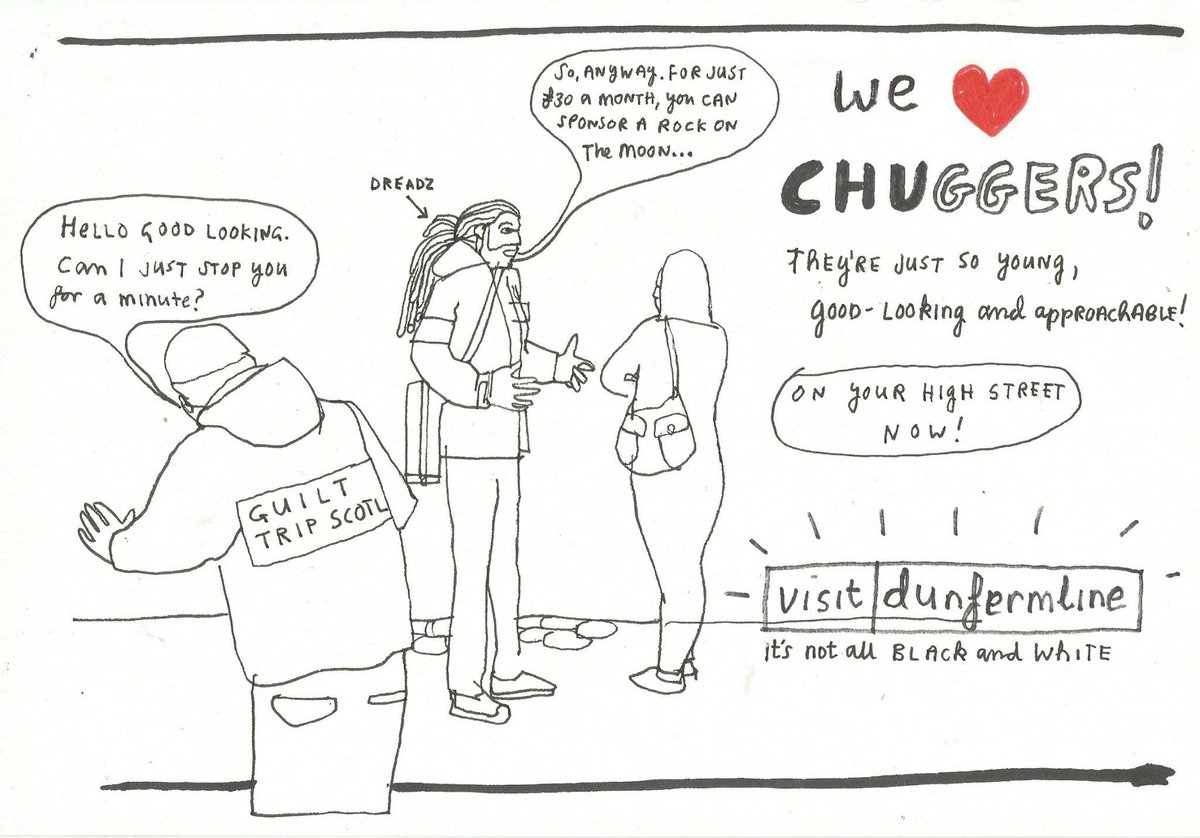 Hello GOOD LOOKING.
Can I JUST STOP YOU
for a minute?
DREADZ
So, ANYWAY. FOR JUST
£30 a MONTH, you CAN
SPONSOR A ROCK ON
The MOON...
GUILT
TRIP SCOTL
We ❤
CHUGGERS!
THEY'RE JUST SO YOUNG,
GOOD-LOOKING and APPROACHABLE!
ON YOUR HIGH STREET
NOW!
visit dunfermline
it's not all BLACK and WHITE